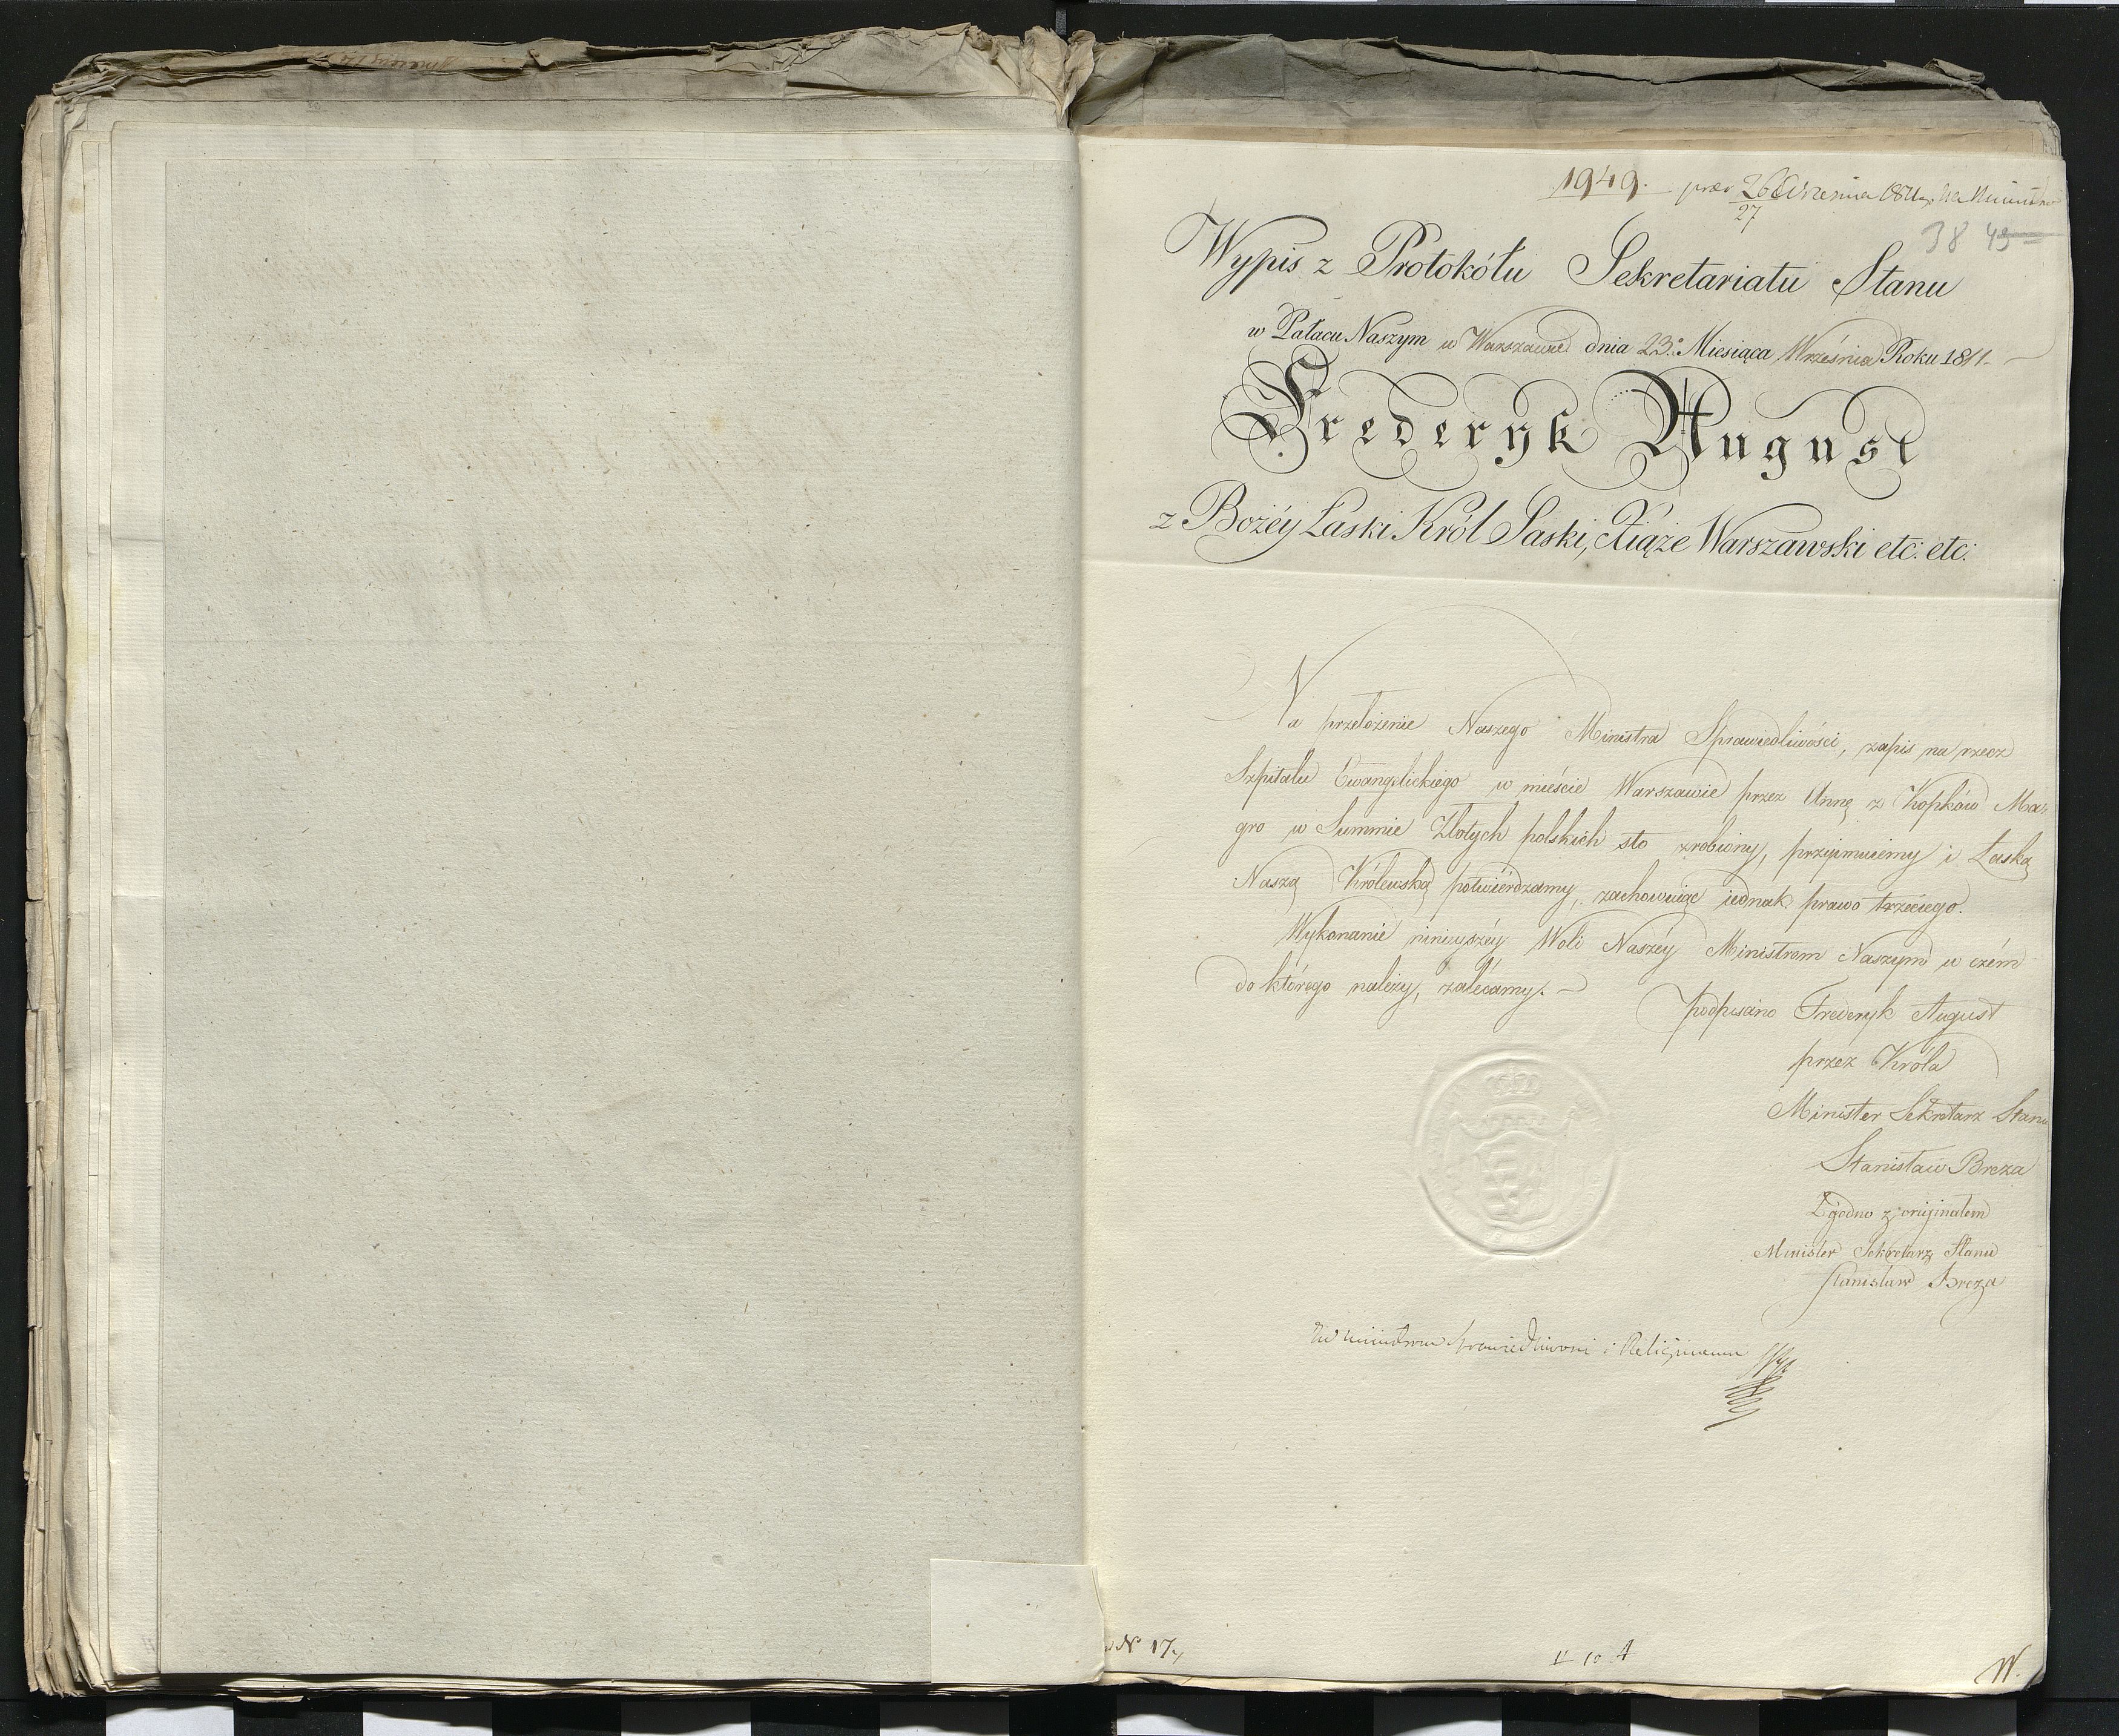 1949. – prae 26 Września 1811.
27
38 43
Wypis z Protokółu Sekretariatu Stanu
w Pałacu Naszym w Warszawie dnia 23.º Miesiąca Września Roku 1811. –
Frederyk August
z Bożéy Łaski Król Saski, Xiąże Warszawski etc: etc:
Na przełożenie Naszego Ministra Sprawiedliwości, zapis na rzecz
Szpitalu Ewangelickiego w mieście Warszawie przez Annę z Kopków Ma-
gro w Summie Złotych polskich sto zrobiony, przyimuiemy i Łaską
Naszą Królewską potwiérdzamy, zachowuiąc iednak prawo trzeciego.
Wykonanie ninieyszéy Woli Naszéy Ministrom Naszym w czém
do którego należy, zalécamy. –
podpisano Frederyk August
przez Króla
Minister Sekretarz Stanu
Stanisław Breza
Zgodno z oryginałem
Minister Sekretarz Stanu
Stanisław Breza
Ministrowi Sprawiedliwości i Religiinemu
N. 17.
W.